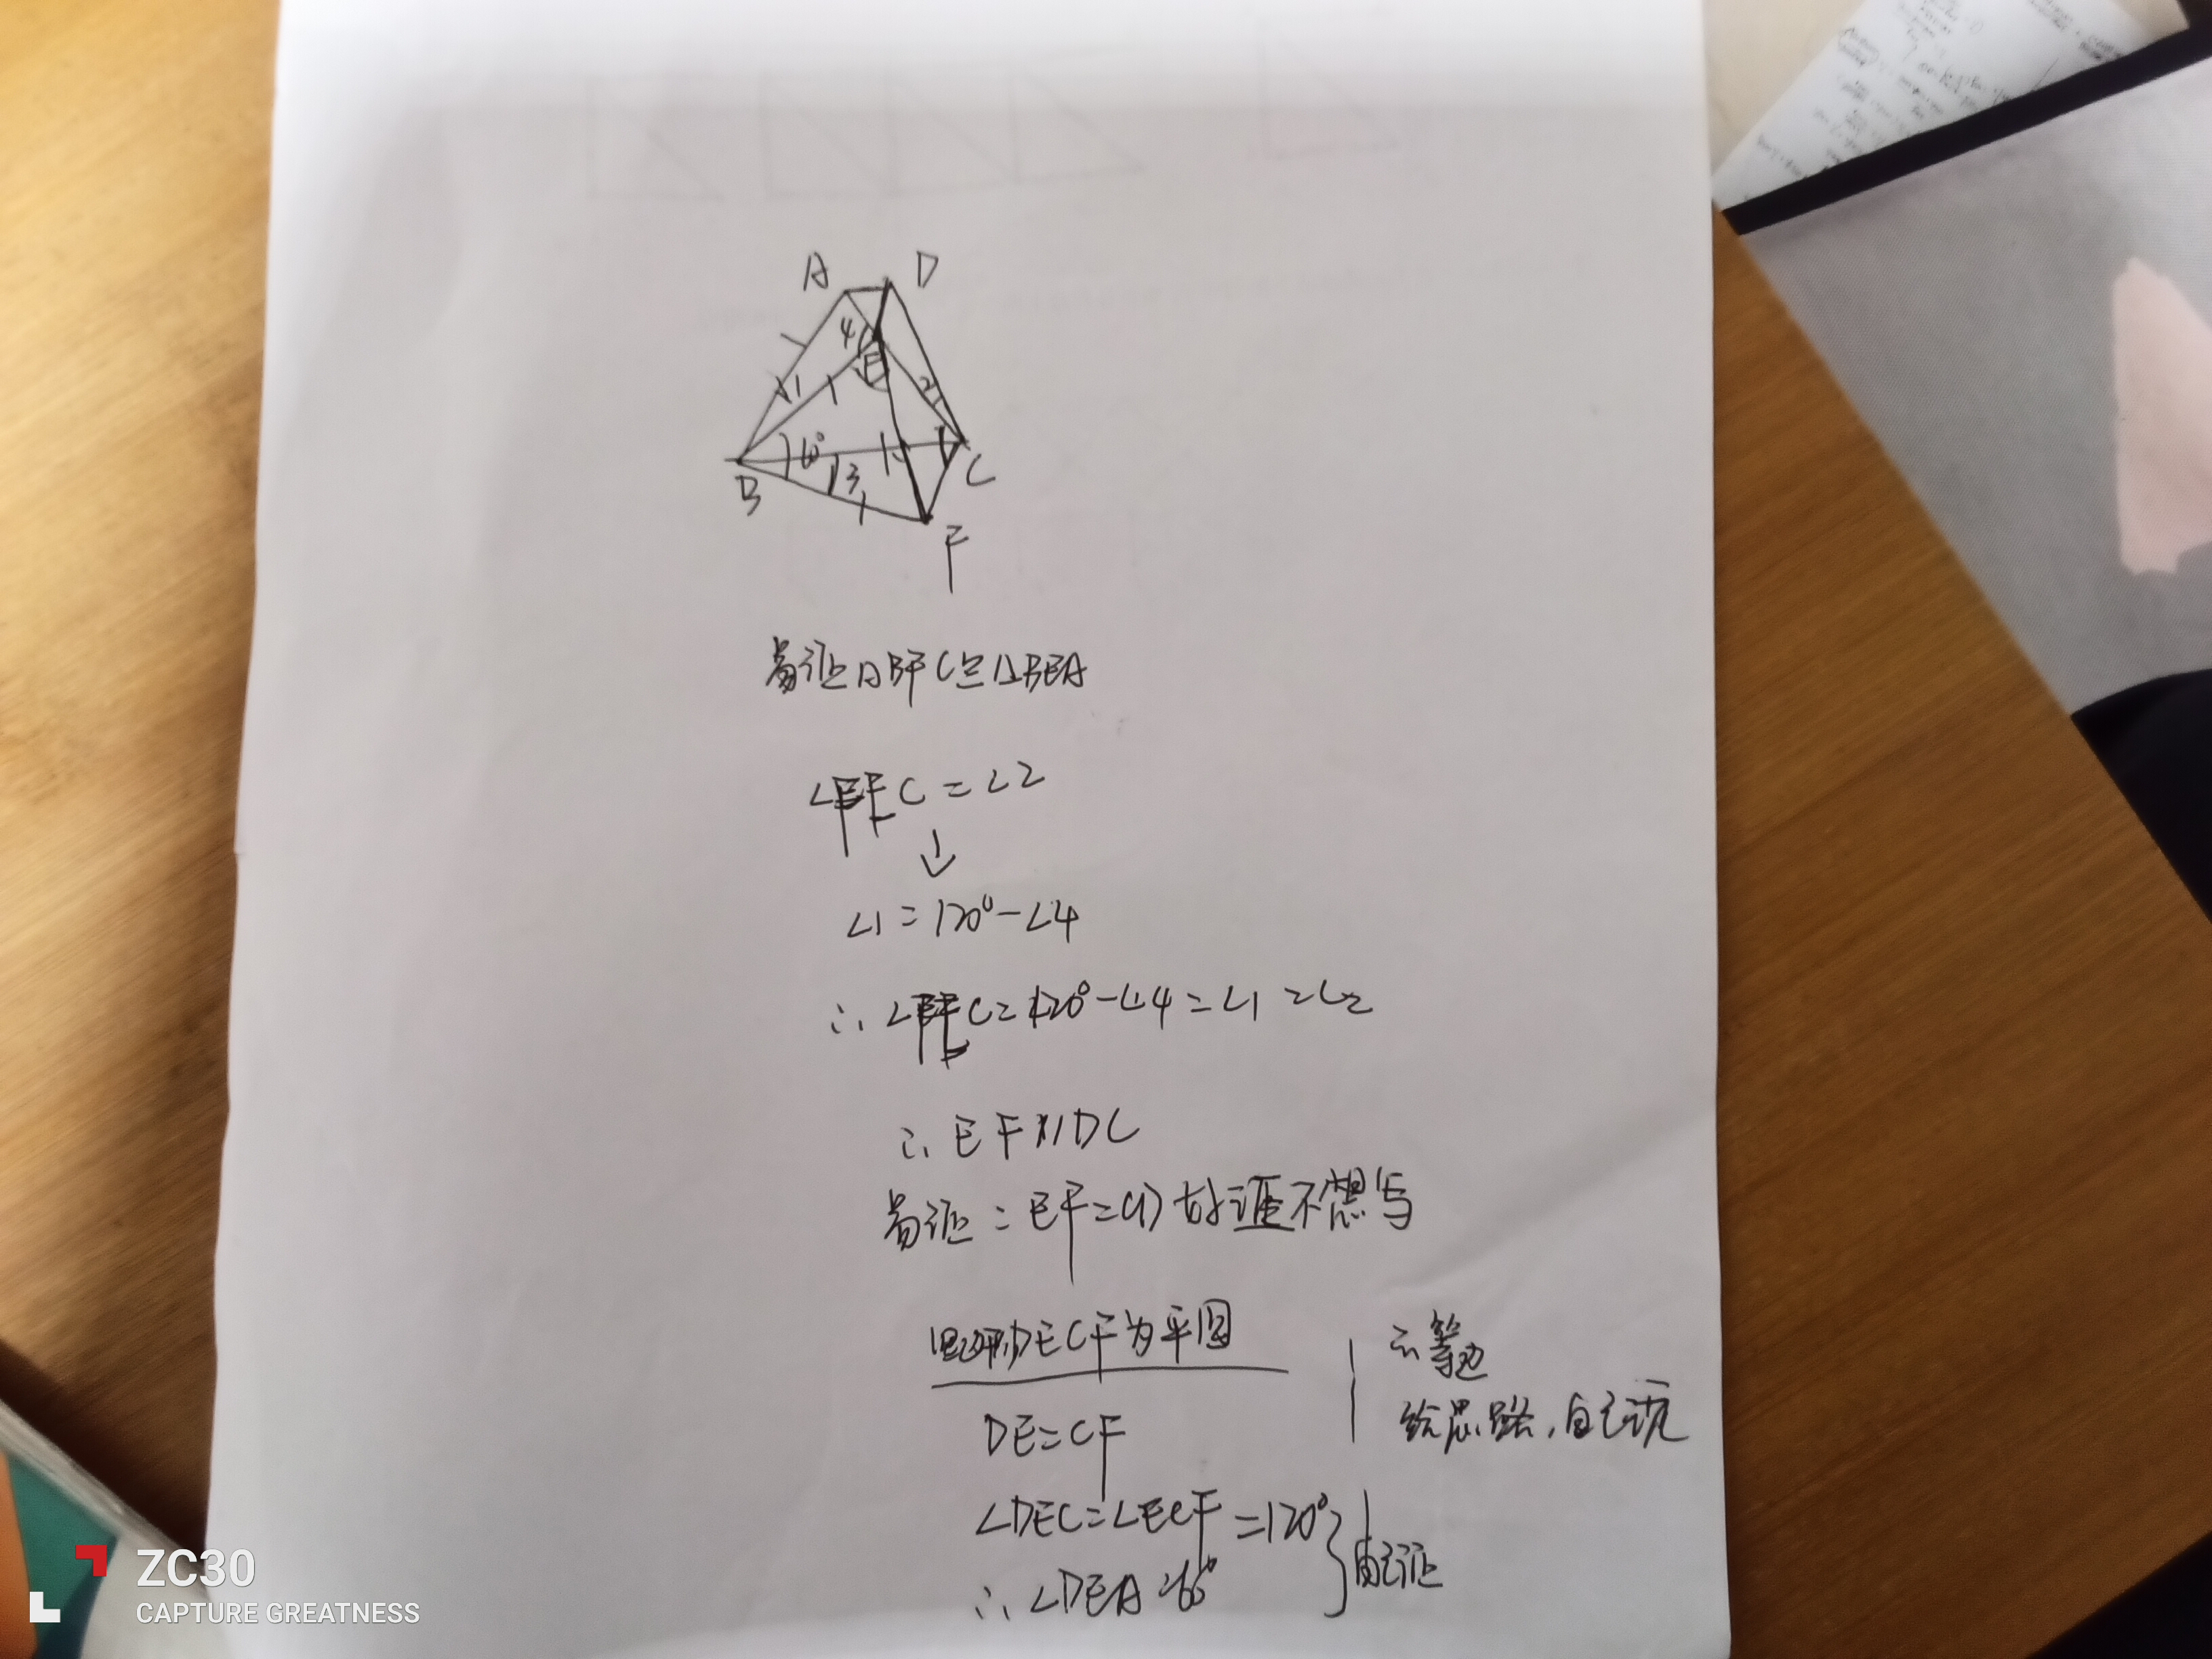 A D
4
E
1 2
60°
3
B C
F
易证△BFC≌△BEA
∠EFC=∠2
↓
∠1=120°-∠4
∴∠EFC=120°-∠4=∠1=∠2
∴EF∥DC
易证:EF=CD 故证不想写
四边形DECF为平四
DE=CF
∴等边
给思路,自己玩
∠DEC=∠ECF=120°
∴∠DEA=60°
自己证
ZC30
CAPTURE GREATNESS